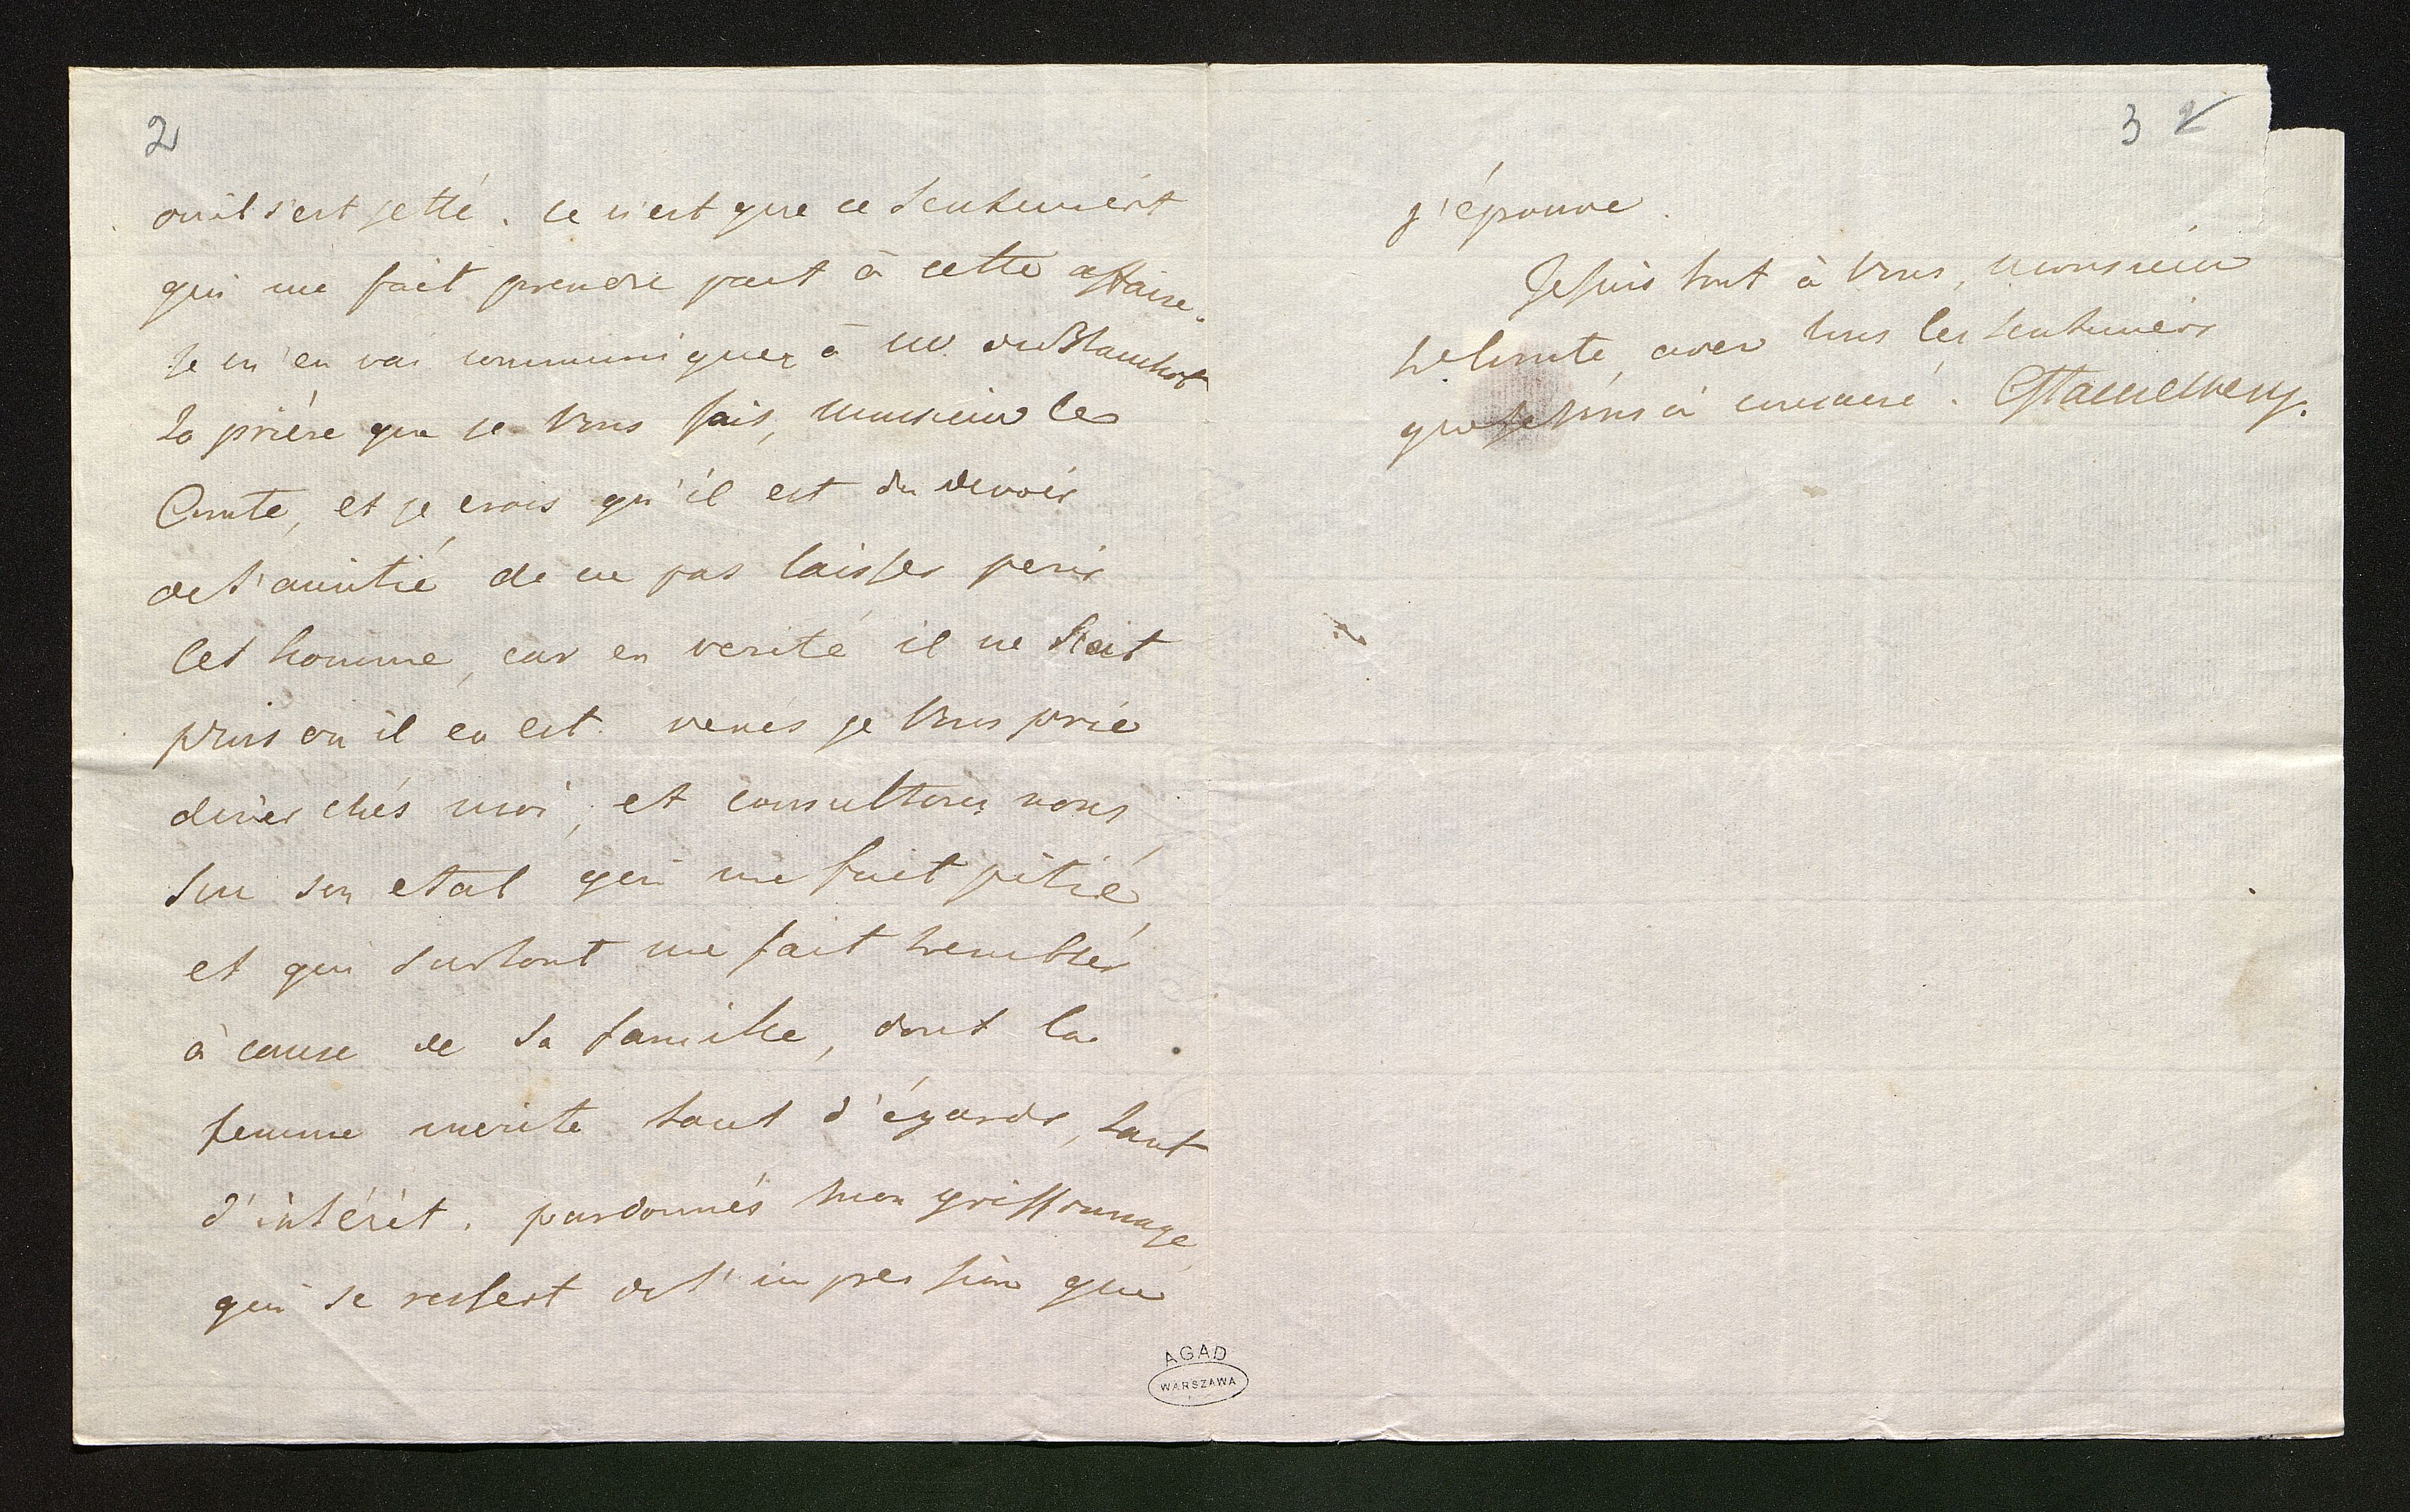 2
où il s'est jetté. ce n'est que ce sentiment
qui me fait prendre part à cette affaire.
Je m'en vai communiquer à M. du Blanchot
la prière que je Vous fais, monsieur le
Comte, et je crois qu'il est du devoir
de l'amitié de ne pas laisser perir
cet homme, car en verité il ne sçait
plus où il en est. venés je Vous prie
diner chés moi, et consultons nous
sur son etat qui me fait pitié,
et qui surtout me fait trembler
à cause de sa famille, dont la
femme merite tant d'égards, tant
d'intérêt. pardonnés mon griffonnage,
qui se ressent de l'impression que
3 2
j'éprouve.
Je suis tout à Vous, monsieur
le Comte, avec tous les sentimens
que je Vous ai consacré. CStackelberg.
AGAD
WARSZAWA